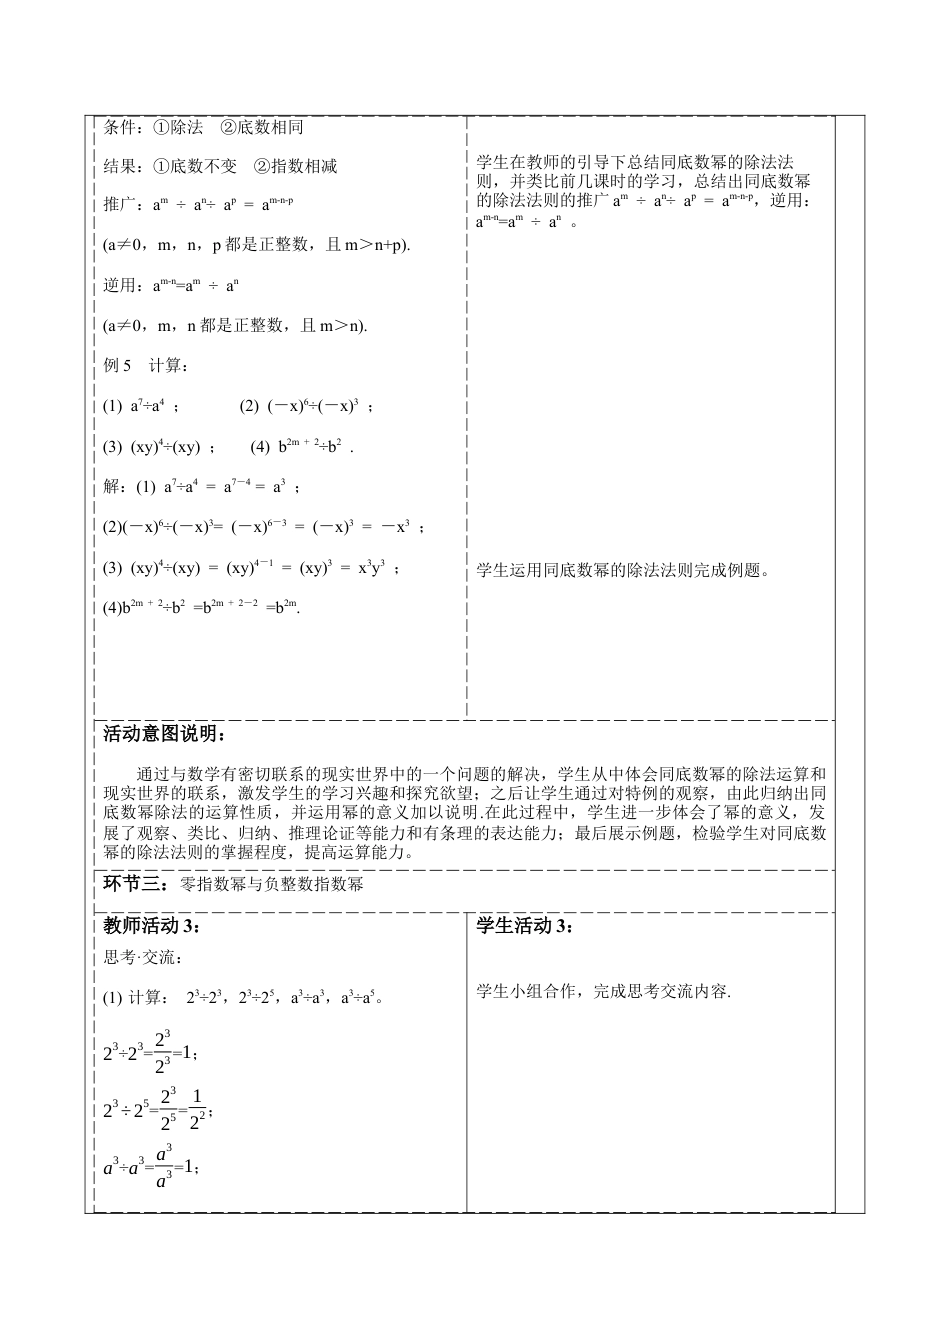 条件：①除法　②底数相同
结果：①底数不变　②指数相减
推广：aᵐ ÷ aⁿ÷ aᵖ = aᵐ⁻ⁿ⁻ᵖ
(a≠0，m，n，p 都是正整数，且 m＞n+p).
逆用：aᵐ⁻ⁿ=aᵐ ÷ aⁿ
(a≠0，m，n 都是正整数，且 m＞n).
例 5　计算：
(1) a⁷÷a⁴ ；　　(2) (－x)⁶÷(－x)³ ；
(3) (xy)⁴÷(xy) ；　(4) b²ᵐ ⁺ ²÷b² .
解：(1) a⁷÷a⁴ = a⁷⁻⁴ = a³ ；
(2)(－x)⁶÷(－x)³= (－x)⁶⁻³ = (－x)³ = －x³ ；
(3) (xy)⁴÷(xy) = (xy)⁴⁻¹ = (xy)³ = x³y³ ；
(4)b²ᵐ ⁺ ²÷b² =b²ᵐ ⁺ ²⁻² =b²ᵐ.
学生在教师的引导下总结同底数幂的除法法
则，并类比前几课时的学习，总结出同底数幂
的除法法则的推广 aᵐ ÷ aⁿ÷ aᵖ = aᵐ⁻ⁿ⁻ᵖ，逆用：
aᵐ⁻ⁿ=aᵐ ÷ aⁿ 。
学生运用同底数幂的除法法则完成例题。
活动意图说明：
通过与数学有密切联系的现实世界中的一个问题的解决，学生从中体会同底数幂的除法运算和
现实世界的联系，激发学生的学习兴趣和探究欲望；之后让学生通过对特例的观察，由此归纳出同
底数幂除法的运算性质，并运用幂的意义加以说明.在此过程中，学生进一步体会了幂的意义，发
展了观察、类比、归纳、推理论证等能力和有条理的表达能力；最后展示例题，检验学生对同底数
幂的除法法则的掌握程度，提高运算能力。
环节三：零指数幂与负整数指数幂
教师活动 3：
思考·交流：
(1) 计算： 2³÷2³，2³÷2⁵，a³÷a³，a³÷a⁵。
2³÷2³=2³/2³=1；
2³÷2⁵=2³/2⁵=1/2²；
a³÷a³=a³/a³=1；
学生活动 3：
学生小组合作，完成思考交流内容.